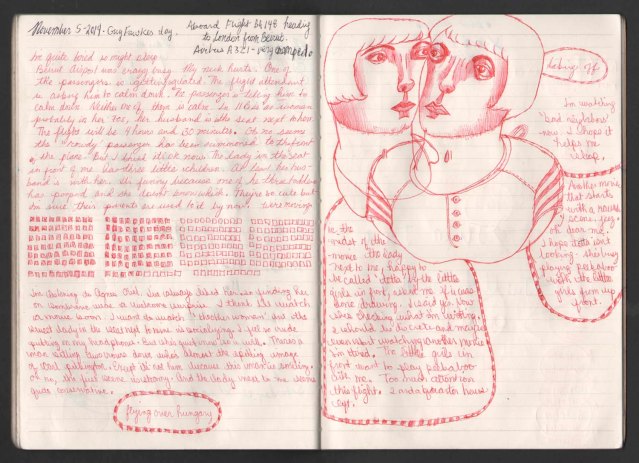 November 5-2014. Guy Fawkes day.
Aboard Flight BA148 heading
to London from Beirut.
Airbus A321-very cramped
I'm quite tired so might sleep
Beirut Airport was crazy busy. My neck hurts. One of
the passengers is The flight attendant
is asking him to calm down. The passenger's telling her to
calm down. Neither one of them is calm. In 11B is a woman
probably in her 70s, her husband is the seat next to her.
The flight will be 4 hours and 30 minutes. Oh no seems
the rowdy passenger has been summoned to the front
of the plane. But I tried it look now. The lady in the seat
in front of me has three little children. At least her hus-
band is with her. It's funny because one of the three
has pooped, and she doesn't know which. They're so cute but
I'm sure their parents are used to it by now. We're moving
I'm listening to Agnes Obel. I've always liked her so finding her
on was a welcome surprise. I think I'll watch
a movie soon. I want to watch a but the
sweet lady in the seat next to mine is socialising. I feel so rude
putting on my headphones. But who's just now so is well. There's a
man sitting two rows down who's almost the spitting image
of Karl Pilkington. Except it's not him because this man is smiling.
Oh no, the first scene is steamy. And the lady next to me seems
quite conservative.
flying over Hungary
taking off
I'm watching
'bad neighbors'
now. I hope it
helps me
sleep.
Another movie
that starts
with a
scene.
oh dear me.
I hope isn't
looking. she's busy
playing peekaboo
with the little
girls from up
front.
in the
midst of the
movie the lady
next to me, happy to
be called to the little
girls in front, asked me if I was
done drawing. I said yes. Now
she's checking what I'm writing.
I should be discrete and maybe
even start watching another movie
I'm tired. The little girls in
front want to play peekaboo
with me. Too much attention
this flight. 2 and a quarter hours
left.